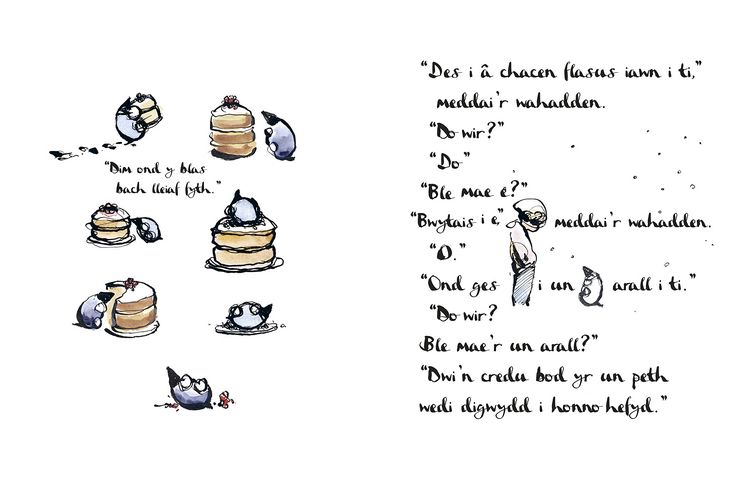 “Dim ond y blas
bach lleiaf fyth.”
“Des i â chacen flasus iawn i ti,”
meddai’r wahadden.
“Do wir?”
“Do”
“Ble mae e?”
“Bwytais i e,” meddai’r wahadden.
“O.”
“Ond ges i un arall i ti.”
“Do wir?
Ble mae’r un arall?”
“Dwi’n credu bod yr un peth
wedi digwydd i honno hefyd.”